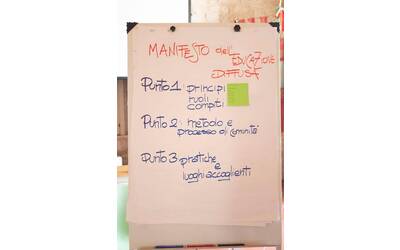 MANIFESTO dell'
EDUCAZIONE
DIFFUSA
PUNTO 1: principi
ruoli
compiti
PUNTO 2: metodo e
processo di comunità
PUNTO 3: pratiche
e
luoghi accoglienti